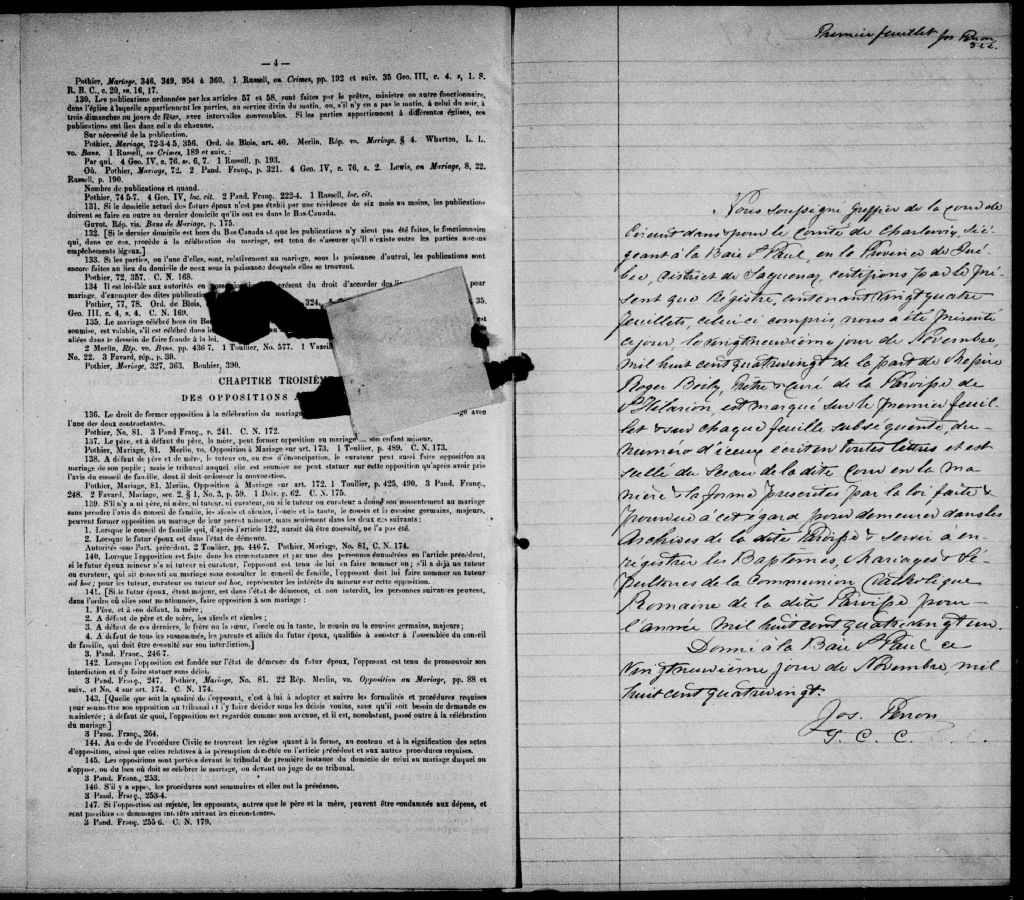 — 4 —
Pothier, Mariage, 346, 349, 954 à 360. 1 Russell, on Crimes, pp. 192 et suiv. 35 Geo. III, c. 4. s, 1. S.
R. B. C., c. 20, ss. 16, 17.
130. Les publications ordonnées par les articles 57 et 58, sont faites par le prêtre, ministre ou autre fonctionnaire,
dans l'église à laquelle appartiennent les parties, au service divin du matin, ou, s'il n'y en a pas le matin, à celui du soir, à
trois dimanches ou jours de fêtes, avec intervalles convenables. Si les parties appartiennent à différentes églises, ces
publications ont lieu dans celle de chacune.
Sur nécessité de la publication.
Pothier, Mariage, 72-3-4 5, 356. Ord. de Blois, art. 40. Merlin, Rép. vo. Mariage, § 4. Wharton, L. L.
vo. Bans. 1 Russell, on Crimes, 189 et suiv. :
Par qui. 4 Geo. IV, c. 76, ss. 6, 7. 1 Russell, p. 193.
Où. Pothier, Mariage, 72. 2 Pand. Franç., p. 321. 4 Geo. IV, c. 76, s. 2. Lewis, on Mariage, 8, 22.
Russell, p. 190.
Nombre de publications et quand.
Pothier, 74 5-7. 4 Geo. IV, loc. cit. 2 Pand. Franç. 222-4. 1 Russell, loc. cit.
131. Si le domicile actuel des futurs époux n'est pas établi par une résidence de six mois au moins, les publications
doivent se faire en outre au dernier domicile qu'ils ont eu dans le Bas-Canada.
Guyot, Rép. vis. Bans de Mariage, p. 175.
132. [Si le dernier domicile est hors du Bas-Canada et que les publications n'y aient pas été faites, le fonctionnaire
qui, dans ce cas, procède à la célébration du mariage, est tenu de s'assurer qu'il n'existe entre les parties aucuns
empêchements légaux.]
133. Si les parties, ou l'une d'elles, sont, relativement au mariage, sous la puissance d'autrui, les publications sont
encore faites au lieu du domicile de ceux sous la puissance desquels elles se trouvent.
Pothier, 72, 357. C. N. 168.
134 Il est loisible aux autorités en présent du droit d'accorder des pour
mariage, d'exempter des dites
Pothier, 77, 78. Ord. de Blois, 324. 35.
Geo. III, c. 4, s. 4. C. N. 169.
135. Le mariage célébré hors du
soumise, est valable, s'il est célébré dans
allées dans le dessein de faire fraude à la loi.
2 Merlin, Rép. vo. Bans, pp. 436 7. 1 Toullier, No. 577. 1
No. 22. 3 Favard, rép., p. 30.
Pothier, Mariage, 327, 363. Bouhier, 390.
CHAPITRE TROISIÈM
DES OPPOSITIONS A
136. Le droit de former opposition à la célébration du mariage avec
l'une des deux contractantes.
Pothier, No. 81. 3 Pand Franç., p. 241. C. N. 172.
137. Le père, et à défaut du père, la mère, peut former opposition au mariage de son enfant mineur.
Pothier, Mariage, 81. Merlin, vo. Opposition à Mariage sur art. 173. 1 Toullier, p. 489. C. N. 173.
138. A défaut de père et de mère, le tuteur ou, au cas d'émancipation, le curateur peut aussi faire opposition au
mariage de son pupile ; mais le tribunal auquel elle est soumise ne peut statuer sur cette opposition qu'après avoir pris
l'avis du conseil de famille, dont il doit ordonner la convocation.
Pothier, Mariage, 81, Merlin, Opposition à Mariage sur art. 172. 1 Toullier, p. 425, 490. 3 Pand. Franç.,
248. 2 Favard, Mariage, sec. 2, § 1, No. 3, p. 59. 1 Delv. p. 62. C. N. 175.
139. S'il n'y a ni père, ni mère, ni tuteur, ni curateur, ou si le tuteur ou curateur a donné son consentement au mariage
sans prendre l'avis du conseil de famille, les aïeuls et aïeules, l'oncle et la tante, le cousin et la cousine germains, majeurs,
peuvent former opposition au mariage de leur parent mineur, mais seulement dans les deux cas suivants :
1. Lorsque le conseil de famille qui, d'après l'article 122, aurait dû être consulté, ne l'a pas été.
2. Lorsque le futur époux est dans l'état de démence.
Autorités sous l'art. précédent. 2 Toullier, pp. 446 7. Pothier, Mariage, No. 81, C. N. 174.
140. Lorsque l'opposition est faite dans les circonstances et par une des personnes énumérées en l'article précédent,
si le futur époux mineur n'a ni tuteur ni curateur, l'opposant est tenu de lui en faire nommer un ; s'il a déjà un tuteur
ou curateur, qui ait consenti au mariage sans consulter le conseil de famille, l'opposant doit lui faire nommer un tuteur
ad hoc ; pour les tuteur, curateur ou tuteur ad hoc, représenter les intérêts du mineur sur cette opposition.
141. [Si le futur époux, étant majeur, est dans l'état de démence, et non interdit, les personnes suivantes peuvent,
dans l'ordre où elles sont mentionnées, faire opposition à son mariage :
1. Père, et à son défaut, la mère ;
2. A défaut de père et de mère, les aïeuls et aïeules ;
3. A défaut de ces derniers, le frère ou la sœur, l'oncle ou la tante, le cousin ou la cousine germains, majeurs ;
4. A défaut de tous les susnommés, les parents et alliés du futur époux, qualifiés à assister à l'assemblée du conseil
de famille, qui doit être consulté sur son interdiction.]
3. Pand. Franç., 246-7.
142. Lorsque l'opposition est fondée sur l'état de démence du futur époux, l'opposant est tenu de promouvoir son
interdiction et d'y faire statuer sans délai.
3 Pand. Franç., 247. Pothier, Mariage, No. 81. 22 Rép. Merlin, vo. Opposition au Mariage, pp. 88 et
suiv., et No, 4 sur art. 174. C. N. 174.
143. [Quelle que soit la qualité de l'opposant, c'est à lui à adopter et suivre les formalités et procédures requises
pour soumettre son opposition au tribunal et l'y faire décider sous les délais voulus, sans qu'il soit besoin de demande en
mainlevée ; à défaut de quoi, l'opposition est regardée comme non avenue, et il est, nonobstant, passé outre à la célébration
du mariage.]
3 Pand. Franç., 264.
144. Au code de Procédure Civile se trouvent les règles quant à la forme, au contenu et à la signification des actes
d'opposition, ainsi que celles relatives à la péremption décrétée en l'article précédent et aux autres procédures requises.
145. Les oppositions sont portées devant le tribunal de première instance du domicile de celui au mariage duquel on
s'oppose, ou du lieu où doit se célébrer le mariage, ou devant un juge de ce tribunal.
3 Pand. Franc., 253.
146. S'il y a appel, les procédures sont sommaires et elles ont la préséance.
3 Pand. Franç., 253-4.
147. Si l'opposition est rejetée, les opposants, autres que le père et la mère, peuvent être condamnés aux dépens, et
sont passibles de dommages intérêts suivant les circonstances.
3 Pand. Franç. 255 6. C. N. 179.
Premier feuillet Jos Perron
G.C.C.
Nous soussigné greffier de la cour de
Circuit dans & pour le Comté de Charlevoix, Sié-
geant à la Baie St Paul, en la Province de Qué-
bec, District de Saguenay, certifions par le pré-
sent que Régistre, contenant vingt quatre
feuillets, celui ci compris, nous a été présenté
ce jour le vingtneuvième jour de Novembre,
mil huit cent quatrevingt de la part de Messire
Roger Boily, Prêtre & Curé de la Paroisse de
St Hilarion, est marqué sur le premier feuil-
let & sur chaque feuille subséquente, du
numéro d'iceux écrit en toutes lettres et est
scellé du Sceau de la dite Cour en la ma-
nière & la forme prescrites par la loi faite &
pourvue à cet égard pour demeurer dans les
Archives de la dite Paroisse & servir à en-
régistrer les Baptêmes, Mariages & Sé-
pultures de la Communion Catholique
Romaine de la dite Paroisse pour
l'année mil huit cent quatrevingt un.
Donné à la Baie St Paul ce
vingtneuvième jour de Novembre, mil
huit cent quatrevingt.
Jos. Perron
G. C. C.